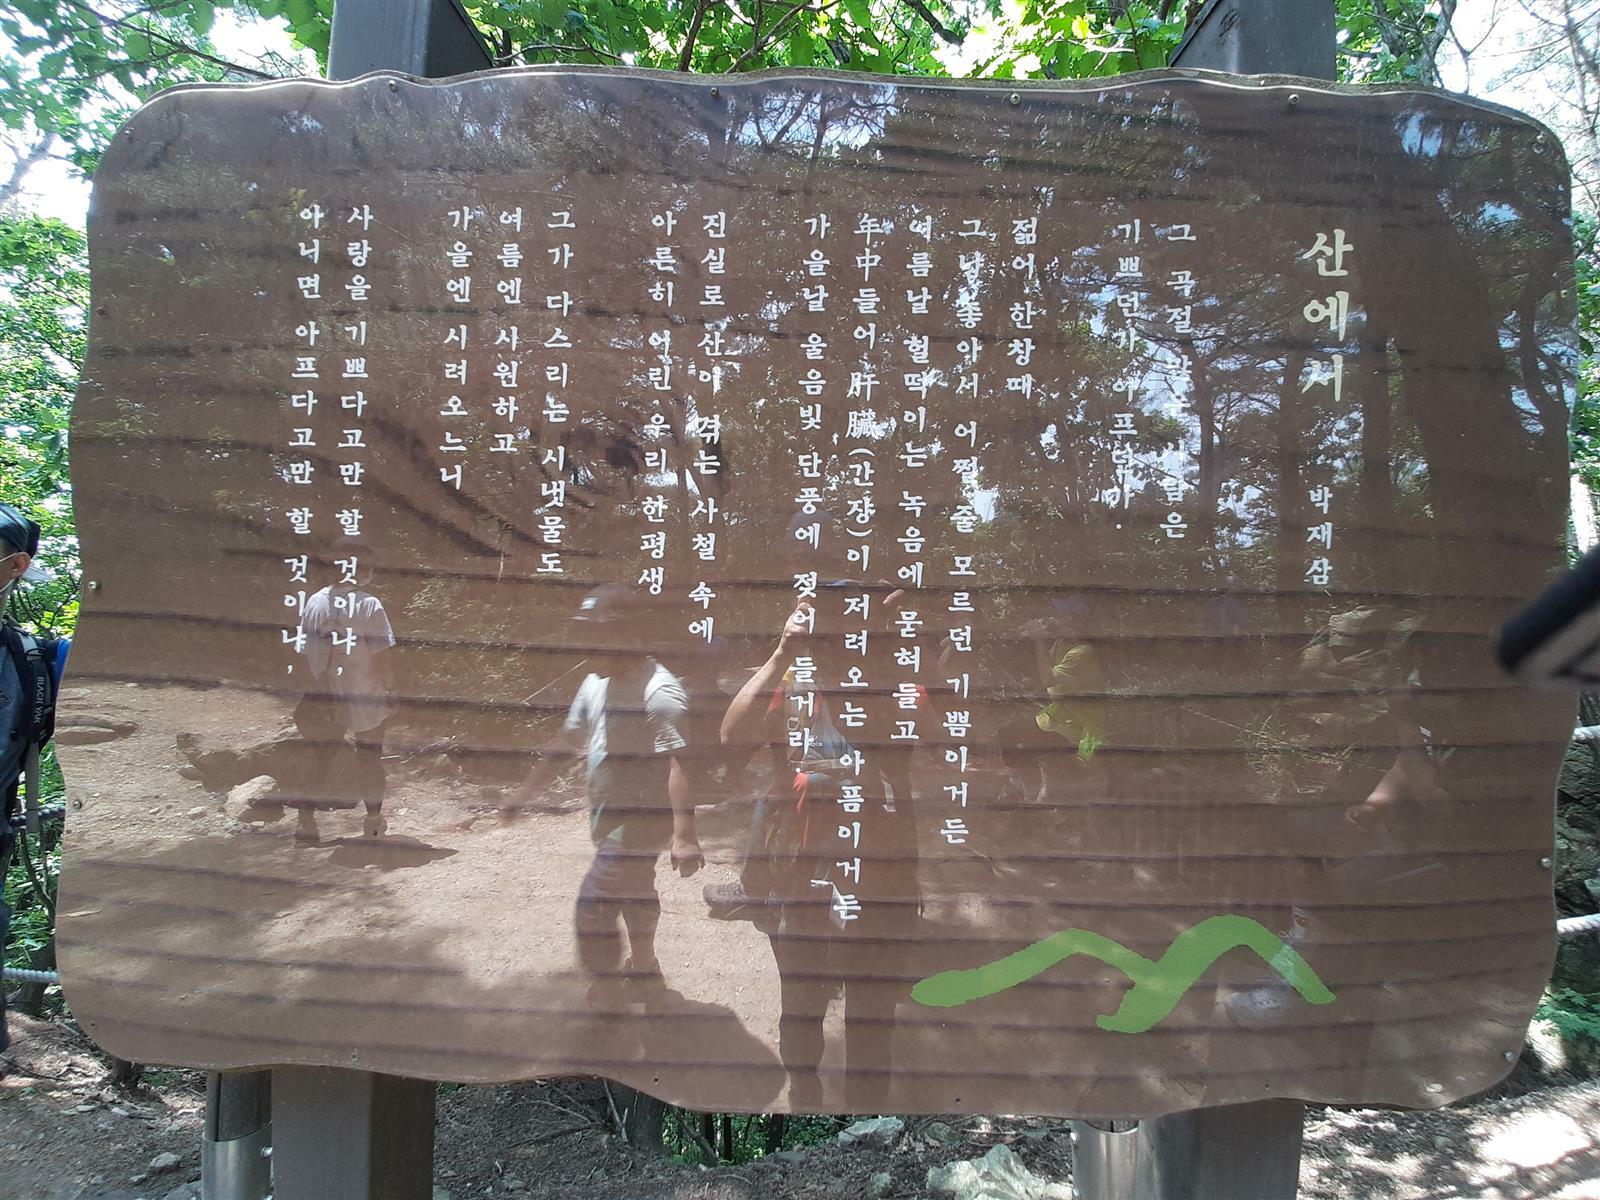 산에서
박재삼
그 곡절 많은 사람은
기쁘던가 아프던가.
젊어 한창때
그냥 좋아서 어쩔줄 모르던 기쁨이거든
여름날 헐떡이는 녹음에 묻혀들고
年中들어 肝臟(간장)이 저려오는 아픔이거든
가을날 울음빛 단풍에 젖어 들거라.
진실로 산이 겪는 사철 속에
아른히 어린 우리 한평생
그가 다스리는 시냇물도
여름엔 시원하고
가을엔 시려오느니
사랑을 기쁘다고만 할 것이냐,
아니면 아프다고만 할 것이냐,
BLACK YAK